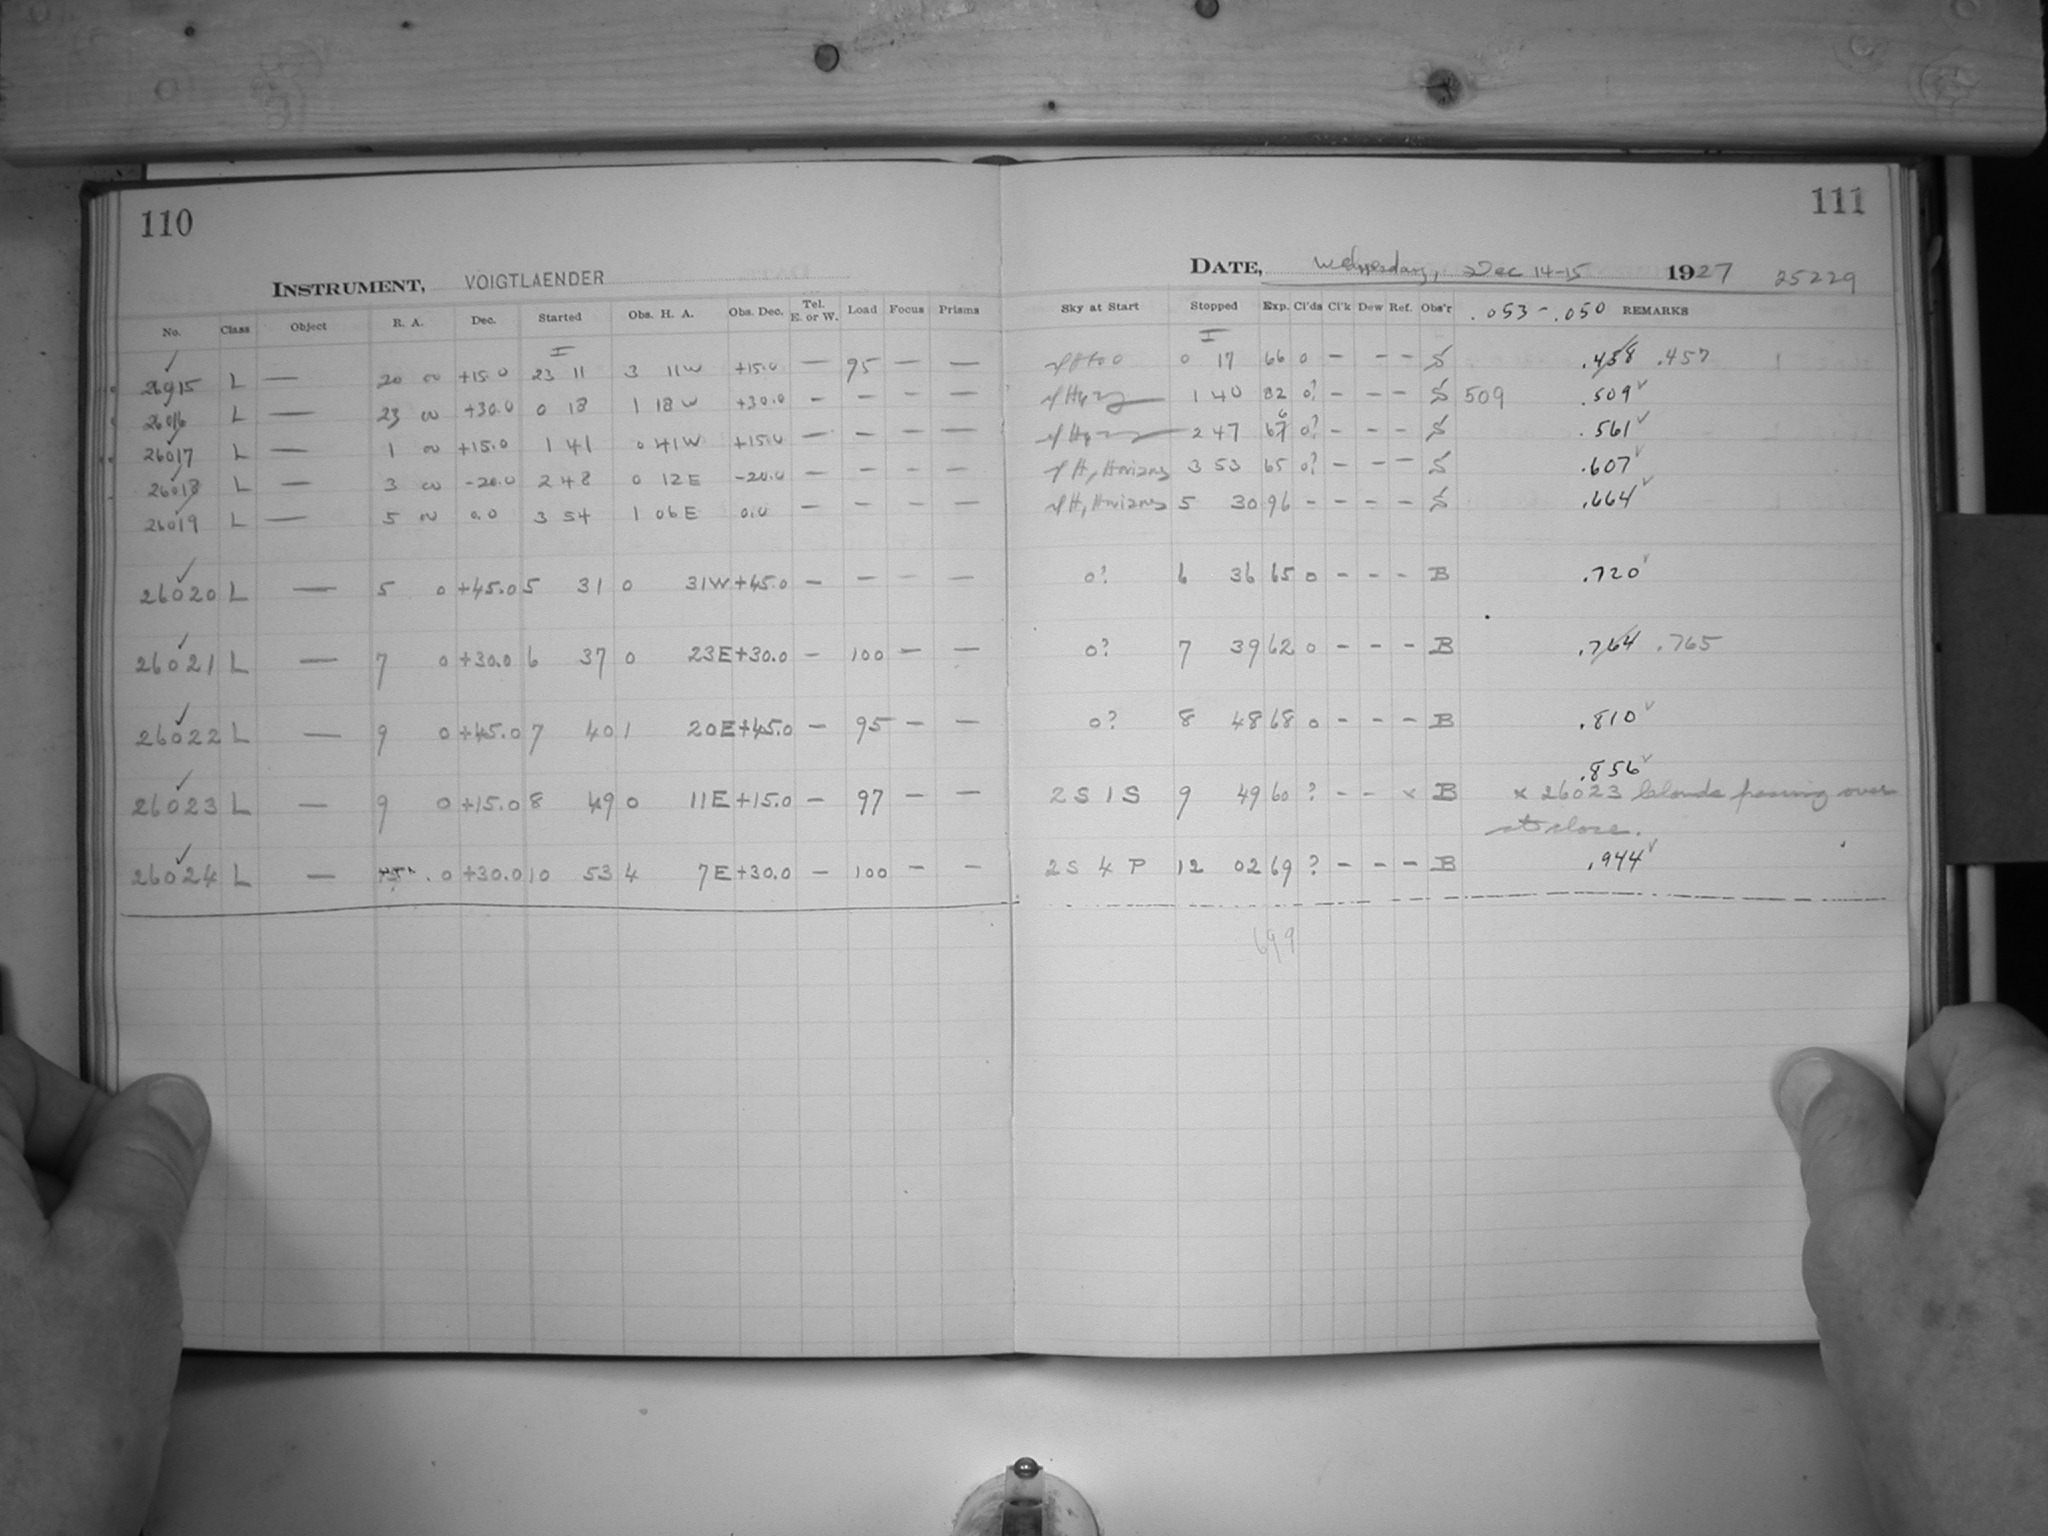 110
INSTRUMENT, VOIGTLAENDER
No. Class Object R. A. Dec. Started Obs. H. A. Obs. Dec. Tel. E. or W. Load Focus Prisms
26015 L — 20 00 +15.0 23 11 3 11W +15.0 — 95 — —
26016 L — 23 00 +30.0 0 18 1 18W +30.0 — — — —
26017 L — 1 00 +15.0 1 41 0 41W +15.0 — — — —
26018 L — 3 00 -20.0 2 48 0 12E -20.0 — — — —
26019 L — 5 00 0.0 3 54 1 06E 0.0 — — — —
26020 L — 5 0 +45.0 5 31 0 31W +45.0 — — — —
26021 L — 7 0 +30.0 6 37 0 23E +30.0 — 100 — —
26022 L — 9 0 +45.0 7 40 1 20E +45.0 — 95 — —
26023 L — 9 0 +15.0 8 49 0 11E +15.0 — 97 — —
26024 L — 0 +30.0 10 53 4 7E +30.0 — 100 — —
111
DATE, Wednesday, Dec 14-15 1927 25229
Sky at Start Stopped Exp. Cl'ds Cl'k Dew Ref. Obs'r .053 - .050 REMARKS
0 17 66 0 — — — S .458 .457
1 40 82 0? — — — S 509 .509
2 47 67 6 0? — — — S .561
H, Horizons 3 53 65 0? — — — S .607
H, Horizons 5 30 96 — — — — S .664
0? 6 36 65 0 — — — B .720
0? 7 39 62 0 — — — B .764 .765
0? 8 48 68 0 — — — B .810
.856
2 S 1 S 9 49 60 ? — — x B x 26023 Clouds passing over
at close.
2 S 4 P 12 02 69 ? — — — B .944
699